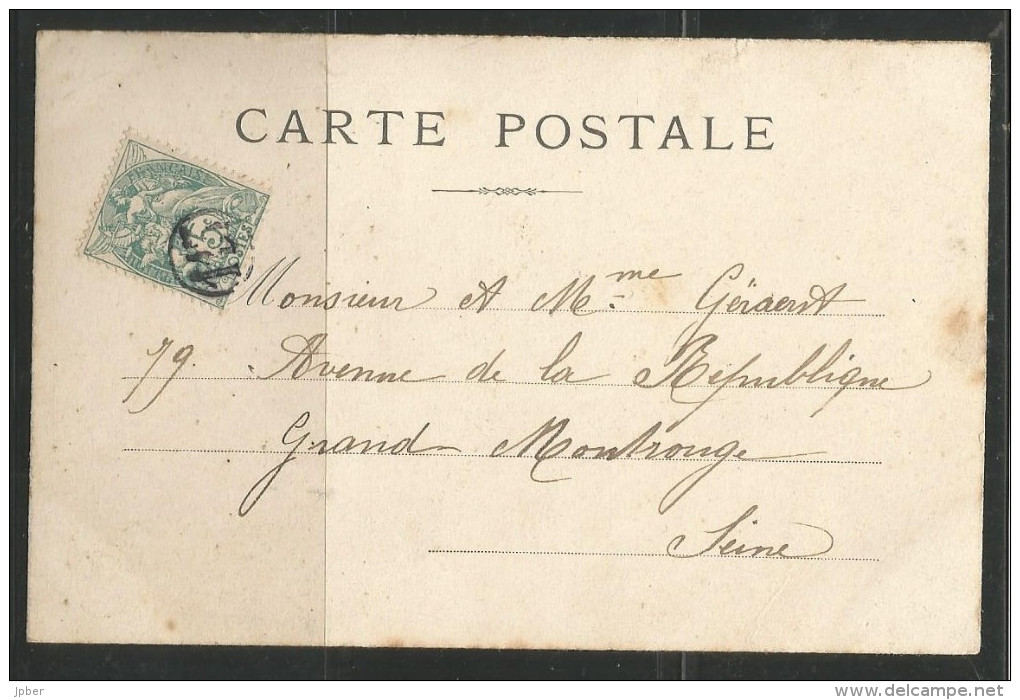 CARTE POSTALE
FRANÇAISE
5c
POSTES
Monsieur et Mme Géraert
79. Avenue de la République
Grand-Montrouge
Seine
jpber
www.delcampe.net